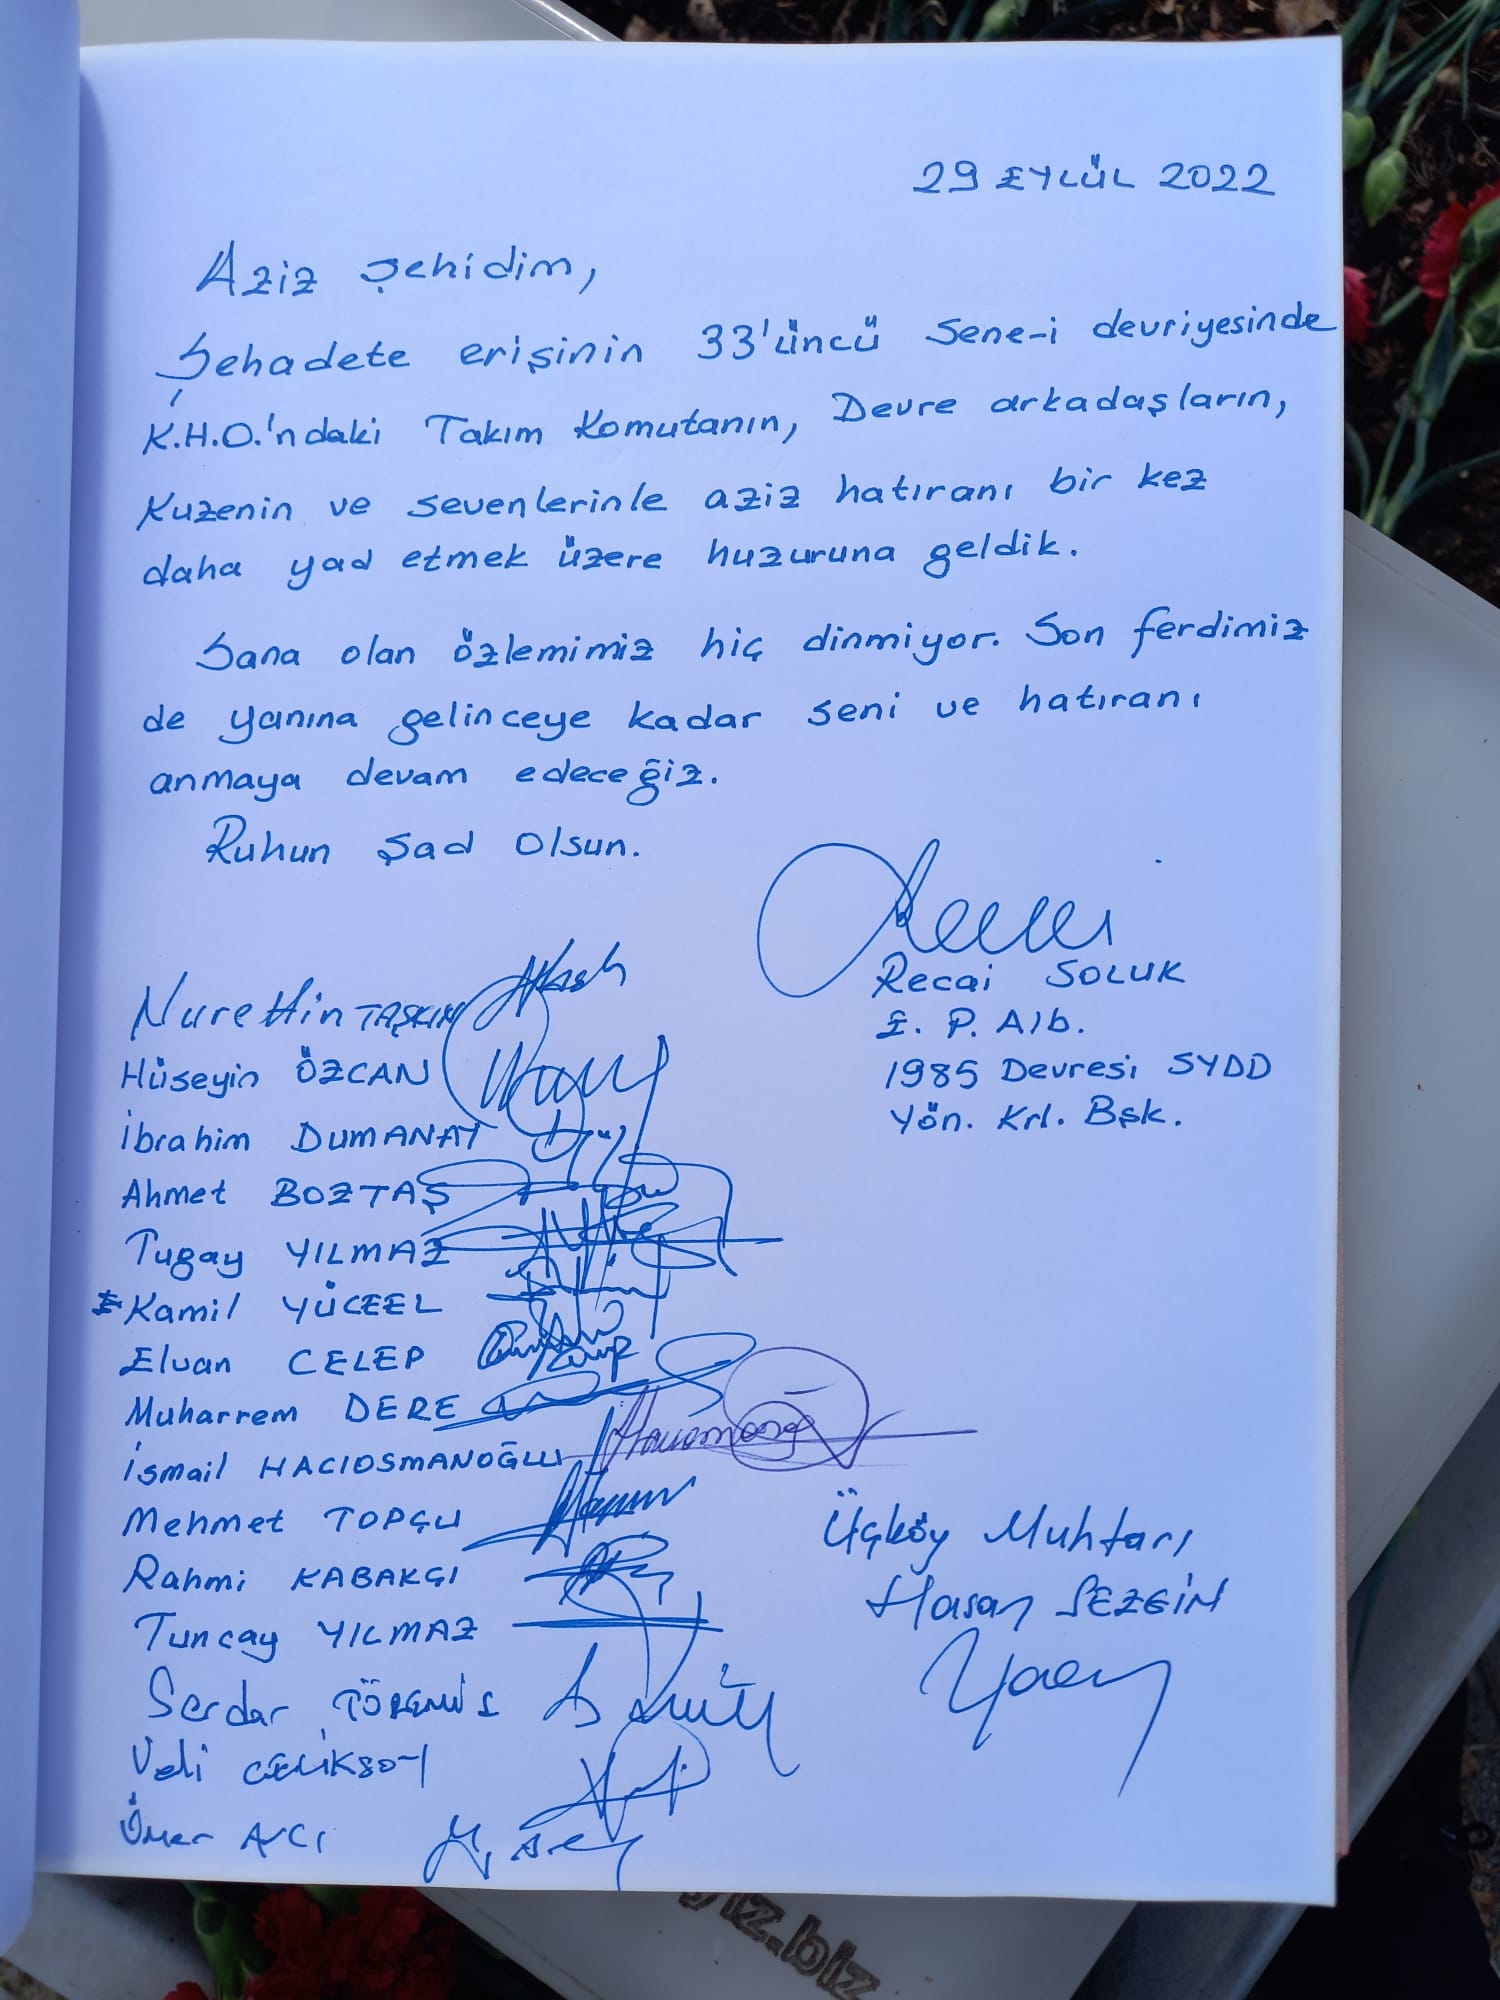 29 EYLÜL 2022
Aziz Şehidim,
Şehadete erişinin 33'üncü sene-i devriyesinde
K.H.O.'ndaki Takım Komutanın, Devre arkadaşların,
Kuzenin ve sevenlerinle aziz hatıranı bir kez
daha yad etmek üzere huzuruna geldik.
Sana olan özlemimiz hiç dinmiyor. Son ferdimiz
de yanına gelinceye kadar seni ve hatıranı
anmaya devam edeceğiz.
Ruhun Şad Olsun.
Recai SOLUK
E. P. Alb.
1985 Devresi SYDD
Yön. Krl. Bşk.
Nurettin TAŞKIN
Hüseyin ÖZCAN
İbrahim DUMANAY
Ahmet BOZTAŞ
Tugay YILMAZ
Kamil YÜCEEL
Elvan CELEP
Muharrem DERE
İsmail HACIOSMANOĞLU
Mehmet TOPÇU
Rahmi KABAKÇI
Tuncay YILMAZ
Serdar
Veli ÇELİKSOY
Ömer AVCI
Üçköy Muhtarı
Hasan SEZGİN
yiz.biz